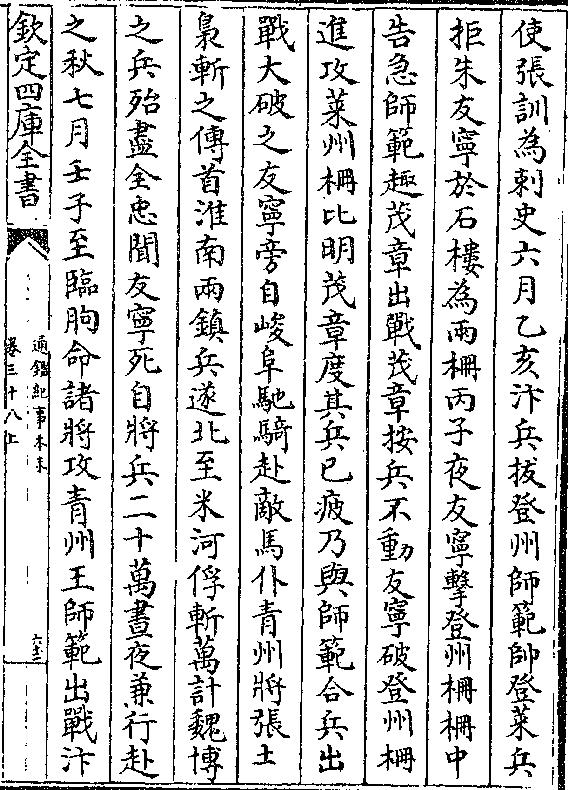 使張訓為刺史六月乙亥汴兵拔登州師範帥登萊兵
拒朱友寧於石樓為兩柵丙子夜友寧擊登州柵柵中
告急師範趣茂章出戰茂章按兵不動友寧破登州柵
進攻萊州柵比明茂章度其兵已疲乃與師範合兵出
戰大破之友寧旁自峻阜馳騎赴敵馬仆青州將張土
梟斬之傳首淮南兩鎮兵逐北至米河俘斬萬計魏博
之兵殆盡全忠聞友寧死自將兵二十萬晝夜兼行赴
之秋七月壬子至臨朐命諸將攻青州王師範出戰汴
欽定四庫全書
通鑑紀事本末
卷三十八上